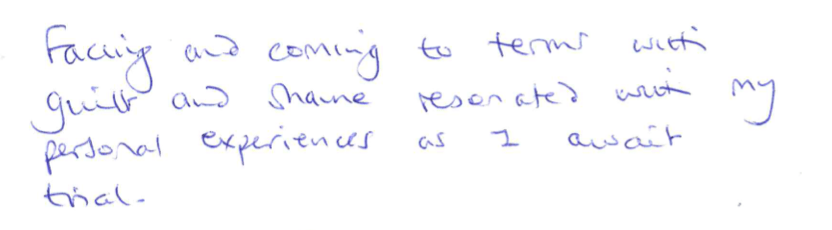 Facing and coming to terms with
guilt and shame resonated with my
personal experiences as I await
trial.